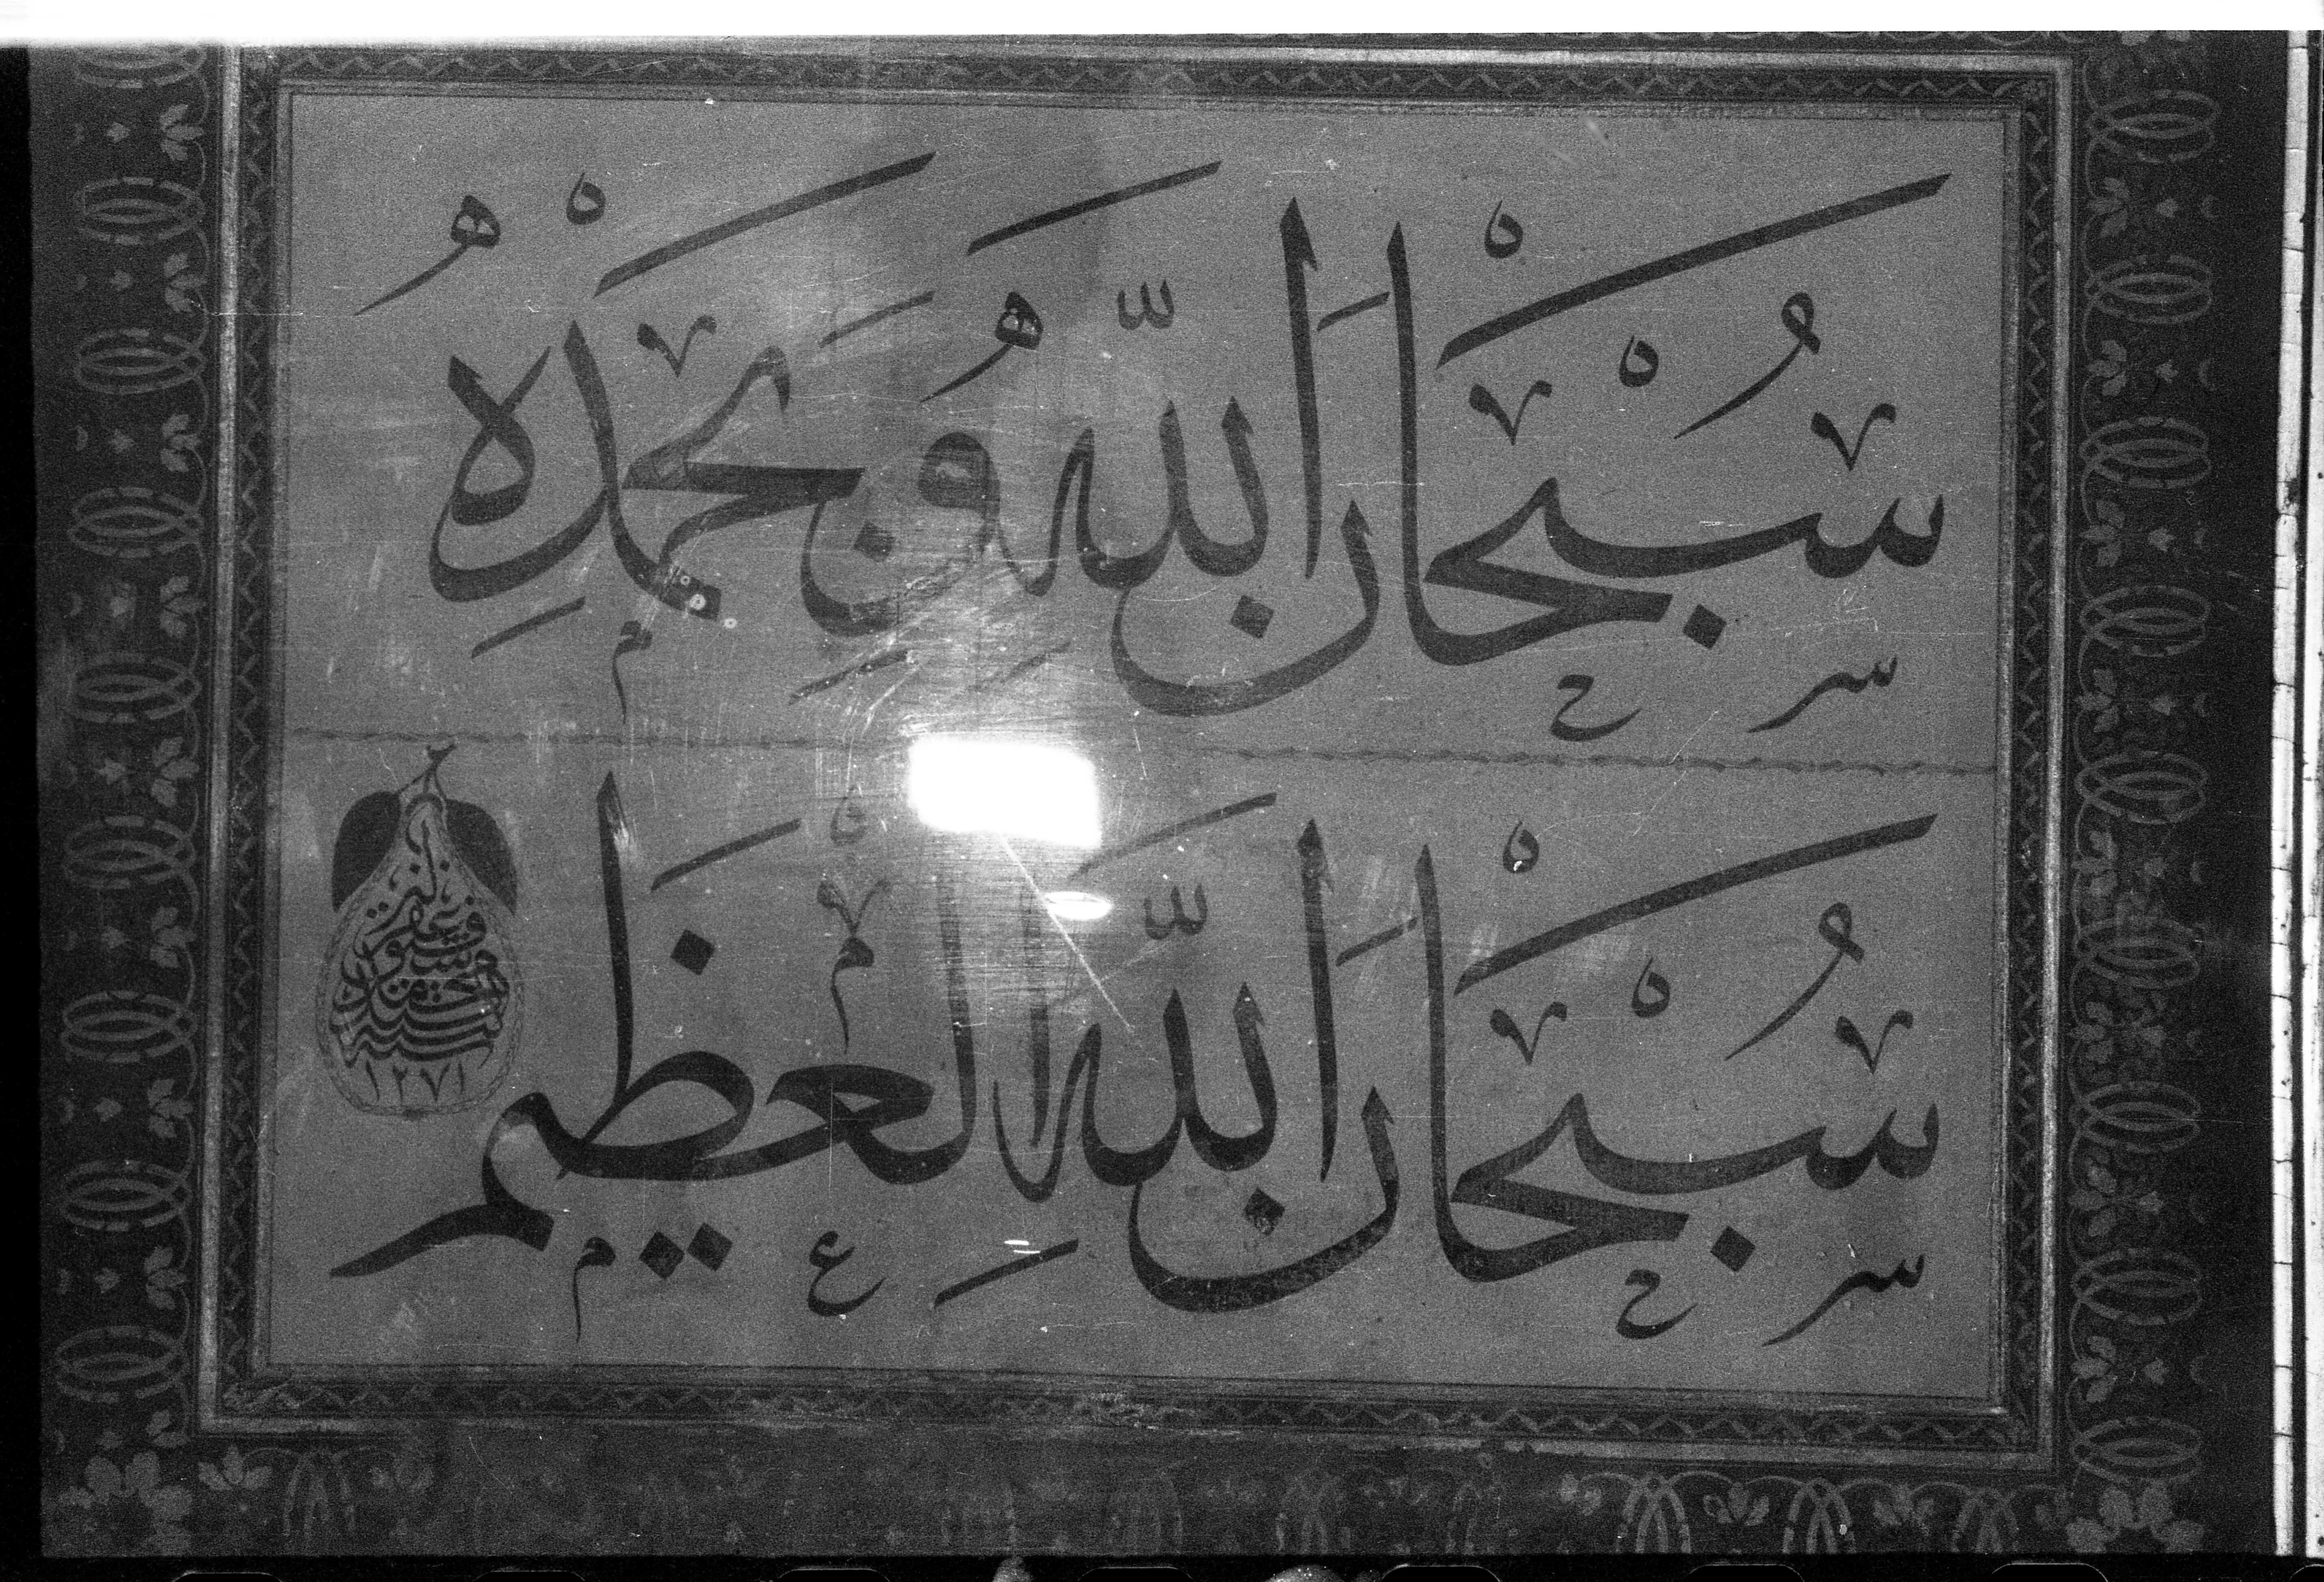 سُبْحَانَ اللّٰهِ وَبِحَمْدِهِ
سُبْحَانَ اللّٰهِ الْعَظِيم
١٢٧١